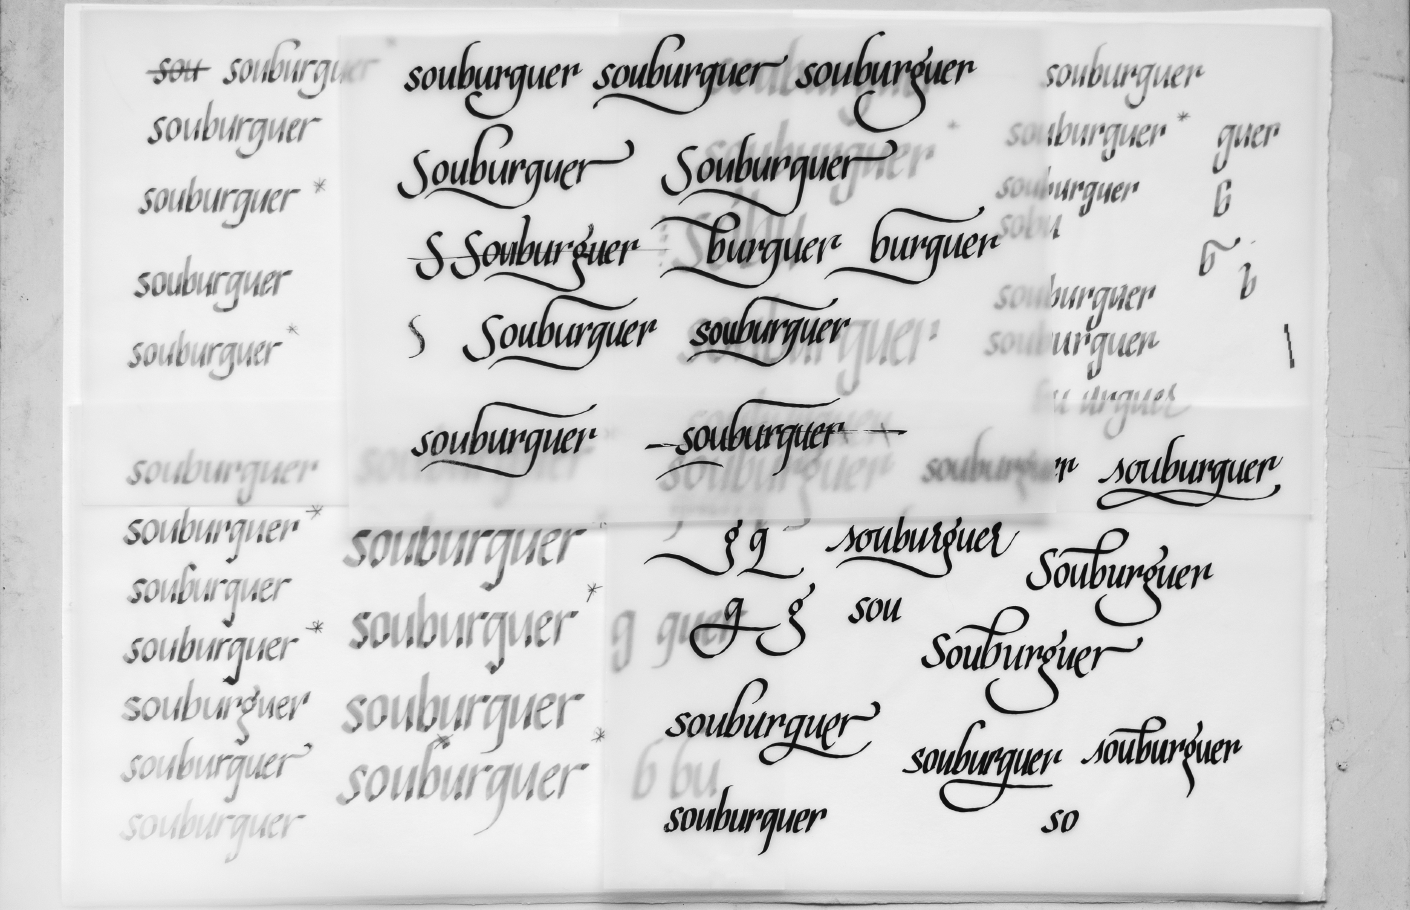 sou souburguer souburguer souburguer souburguer souburguer
souburguer souburguer * guer
souburguer * Souburguer Souburguer souburguer souburguer b
sobu sobu
S Souburguer burguer burguer b b
souburguer souburguer
S Souburguer souburguer souburguer souburguer
souburguer *
bu urguer
souburguer souburguer
souburguer souburguer souburguer souburguer
souburguer * souburguer g g souburguer Souburguer
souburguer * g g sou
souburguer * souburguer g guer Souburguer
souburguer souburguer souburguer
souburguer * souburguer b bu souburguer souburguer
souburguer souburguer so